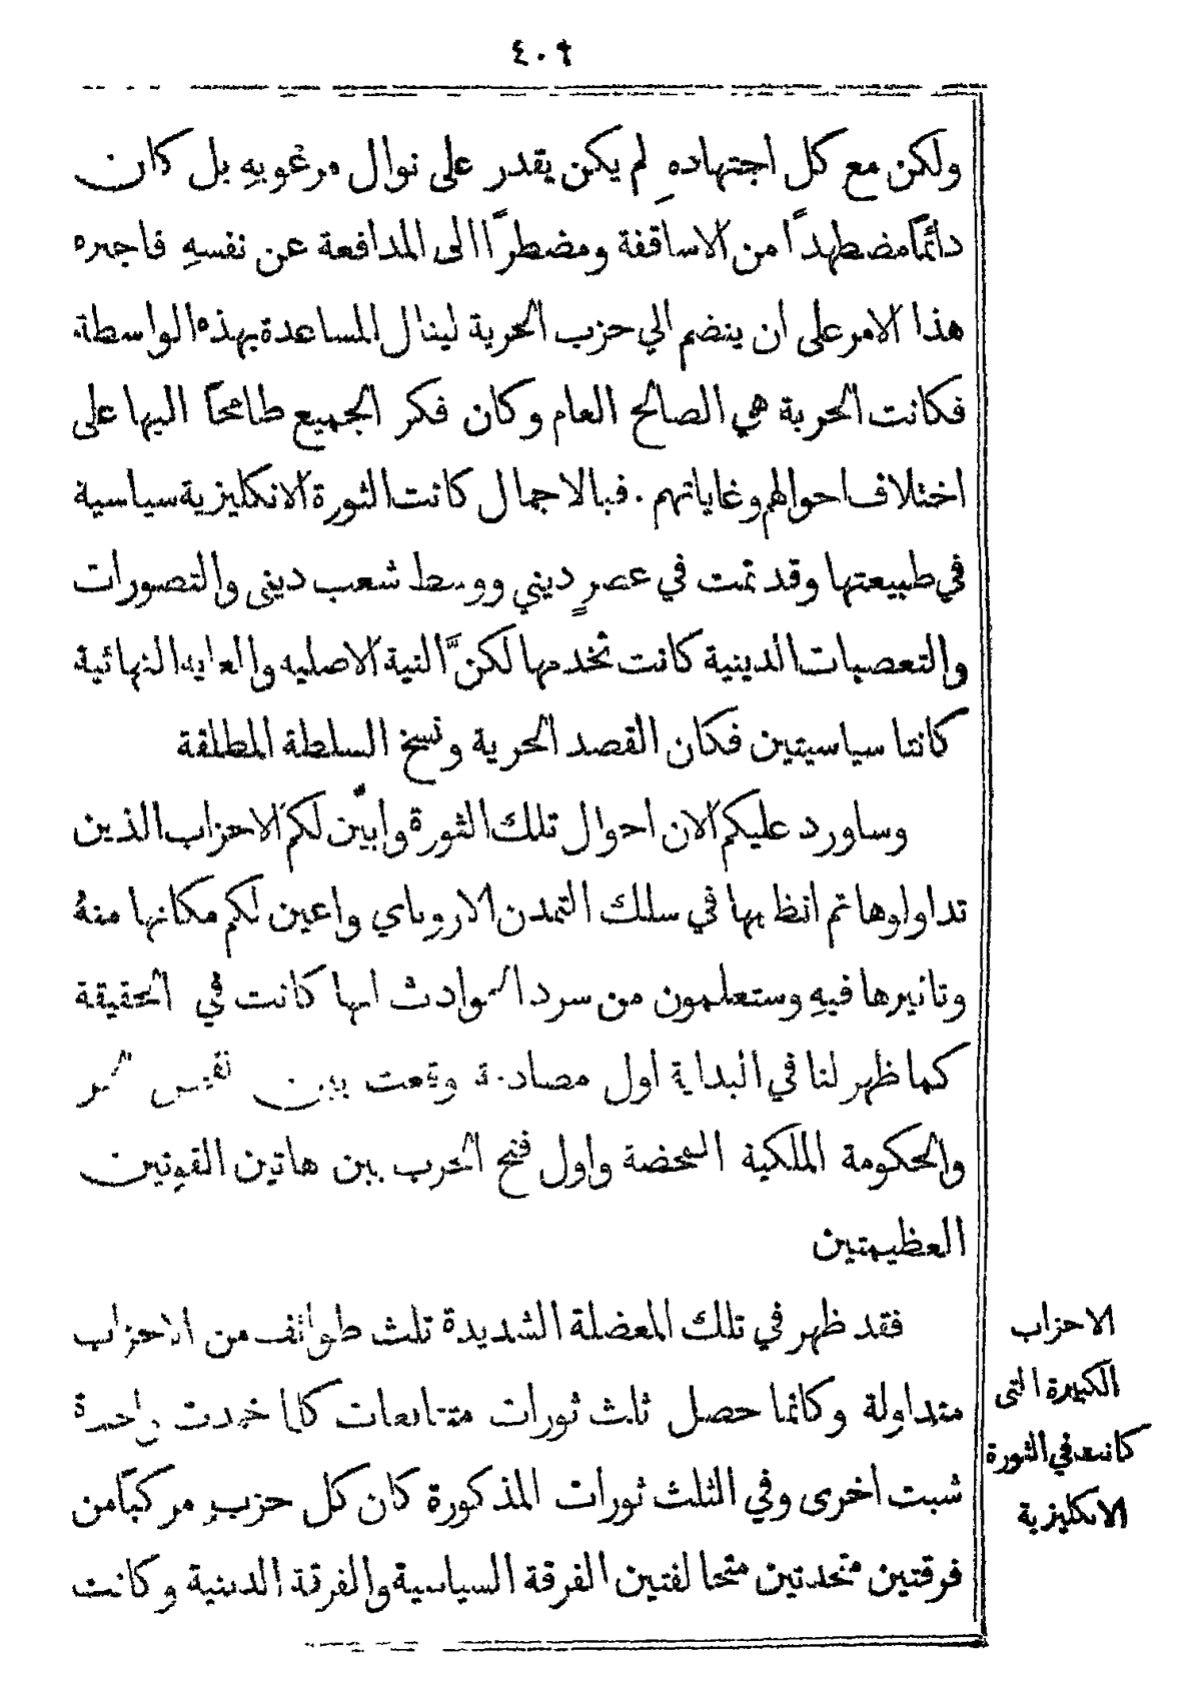 ٤٠٩
ولكن مع كل اجتهاده لم يكن يقدر على نوال مرغوبهِ بل كان
دائمًا مضطهدًا من الاساقفة ومضطرًا الى المدافعة عن نفسهِ فاجبره
هذا الامر على ان ينضم الي حزب الحرية لينال المساعدة بهذه الواسطة
فكانت الحرية هي الصالح العام وكان فكر الجميع طامحًا اليها على
اختلاف احوالهم وغاياتهم . فبالاجمال كانت الثورة الانكليزية سياسية
في طبيعتها وقد تمت في عصرٍ ديني ووسط شعب ديني والتصورات
والتعصبات الدينية كانت تخدمها لكنَّ النية الاصليه والغايه النهائية
كانتا سياسيتين فكان القصد الحرية ونسخ السلطة المطلقة
وساورد عليكم الان احوال تلك الثورة وابيّن لكم الاحزاب الذين
تداولوها ثم انظ بها في سلك التمدن الاروباي واعين لكم مكانها منهُ
وتاثيرها فيهِ وستعلمون من سرد الحوادث انها كانت في الحقيقة
كما ظهر لنا في البداية اول مصادمة وقعت بين
والحكومة الملكية المحضة واول فتح الحرب بين هاتين القوتين
العظيمتين
فقد ظهر في تلك المعضلة الشديدة ثلث طوائف من الاحزاب
متداولة وكانما حصل ثلث ثورات متتابعات كلما خمدت واحدة
شبت اخرى وفي الثلث ثورات المذكورة كان كل حزب مركبًا من
فرقتين متحدتين متحالفتين الفرقة السياسية والفرقة الدينية وكانت
الاحزاب
الكبيرة التى
كانت في الثورة
الانكليزية